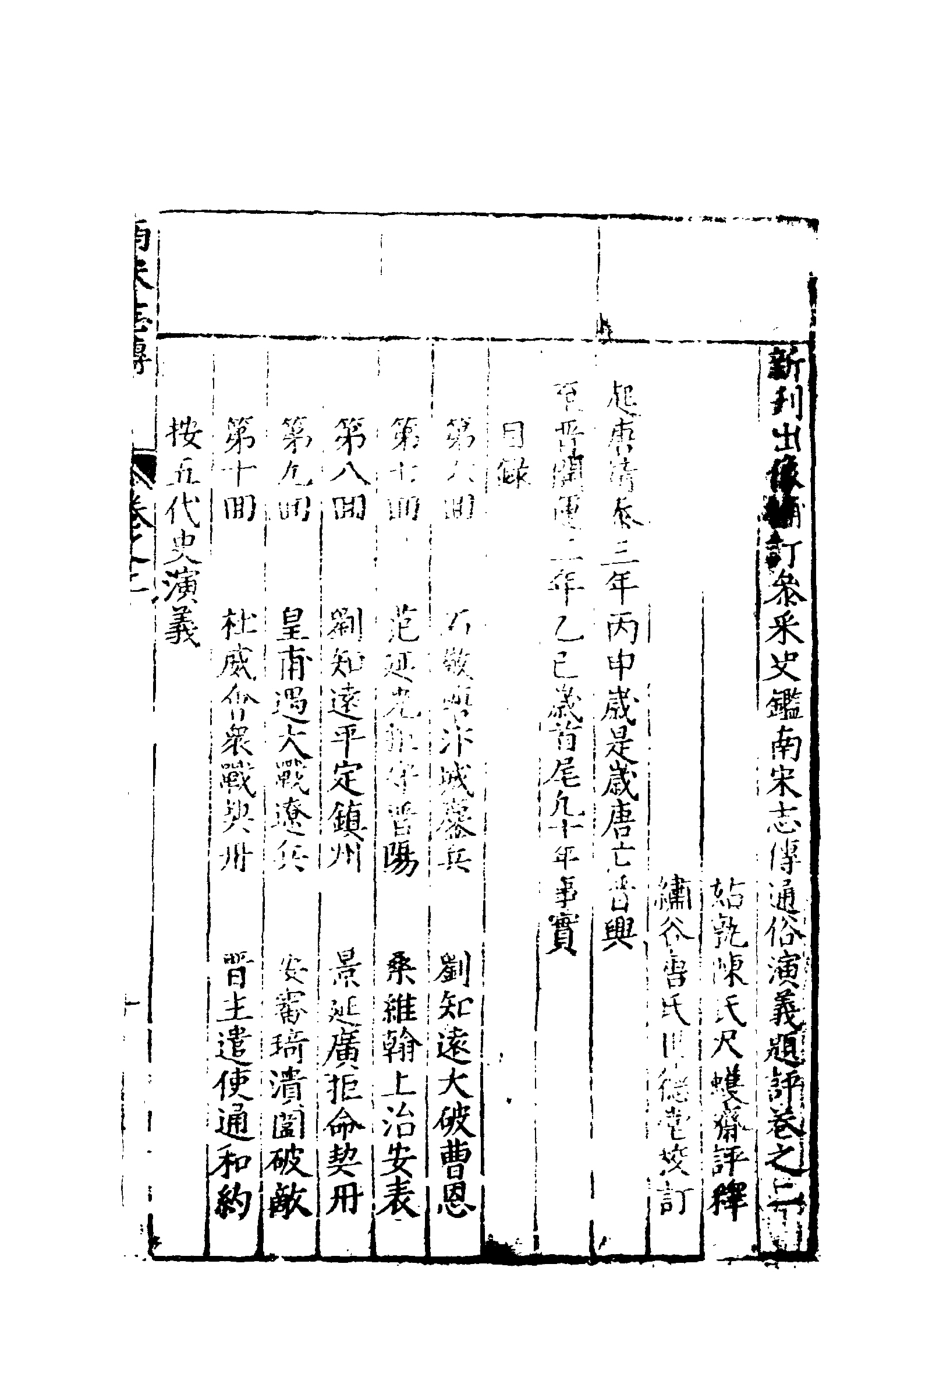 新刊出像補訂叅采史鑑南宋志傳通俗演義題評卷之二
姑孰陳氏尺蠖齋評釋
繡谷唐氏世德堂挍訂
起唐清泰三年丙申歲是歲唐亡晋興
至晋開運二年乙巳歲首尾凡十年事實
目錄
第六回 石敬瑭汴城鏖兵 劉知遠大破曹恩
第七回 范延光拒守晋陽 桑維翰上治安表
第八回 劉知遠平定鎮州 景延廣拒命契丹
第九回 皇甫遇大戰遼兵 安審琦潰圍破敵
第十回 杜威會衆戰契丹 晋主遣使通和約
按五代史演義
南宋志傳 卷之二